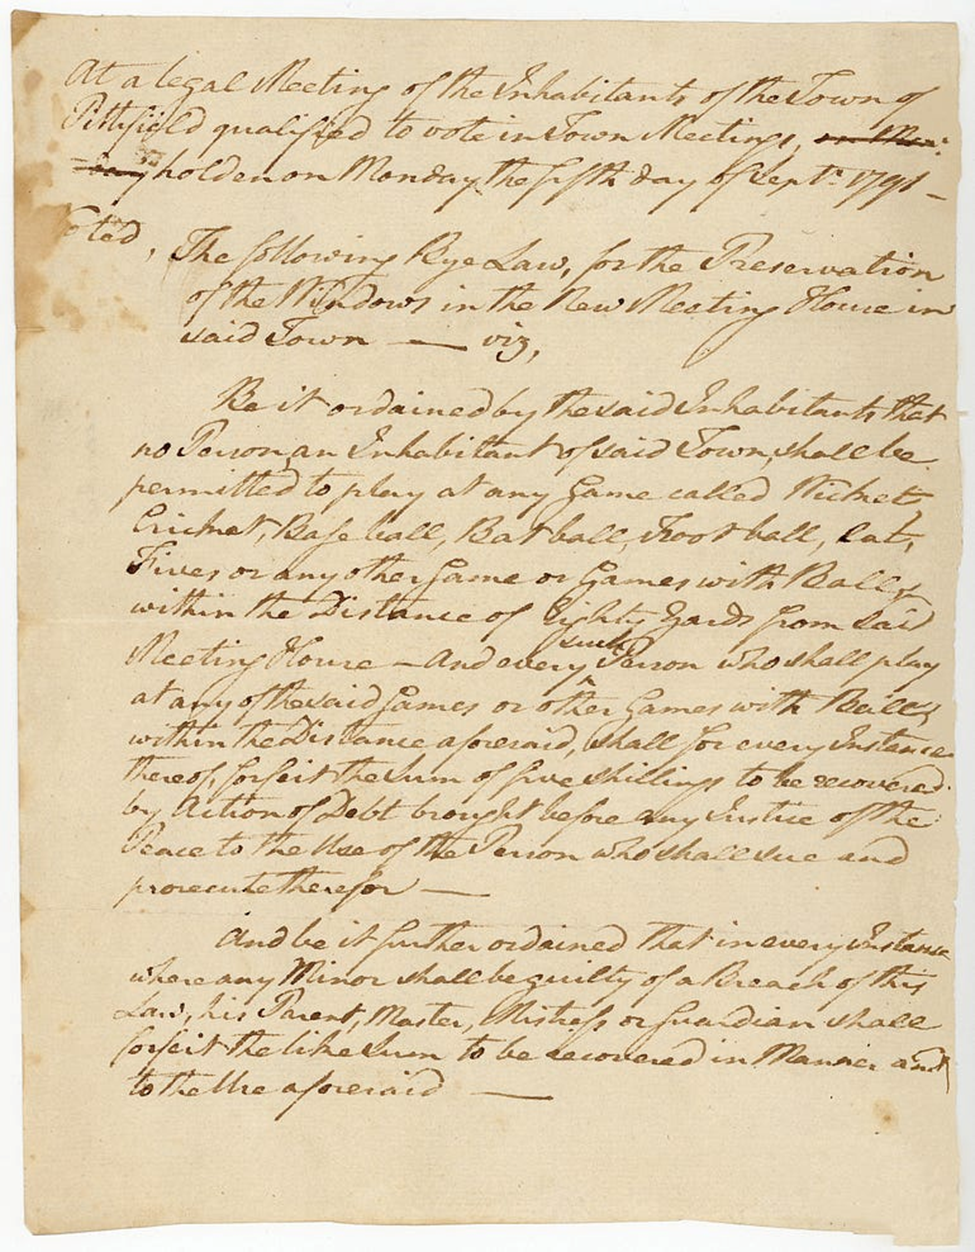 At a legal Meeting of the Inhabitants of the Town of
Pittsfield qualified to vote in Town Meetings, on Mon-
-day holden on Monday the fifth day of Septr. 1791 —
Voted,
The following Bye Law, for the Preservation
of the Windows in the New Meeting House in
said Town — viz,
Be it ordained by the said Inhabitants that
no Person, an Inhabitant of said Town, shall be
permitted to play at any Game called Wicket,
Cricket, Base ball, Bat ball, Foot ball, Cat,
Fives or any other Game or Games with Balls,
within the Distance of Eighty Yards from said
such
Meeting House — And every Person who shall play
at any of the said Games or other Games with Balls
within the Distance aforesaid, shall for every Instance
thereof, forfeit the Sum of five shillings to be recovered
by Action of Debt brought before any Justice of the
Peace to the Use of the Person who shall sue and
prosecute therefor —
And be it further ordained that in every Instance
where any Minor shall be guilty of a Breach of this
Law, his Parent, Master, Mistress or Guardian shall
forfeit the like Sum to be recovered in Manner and
to the Use aforesaid —